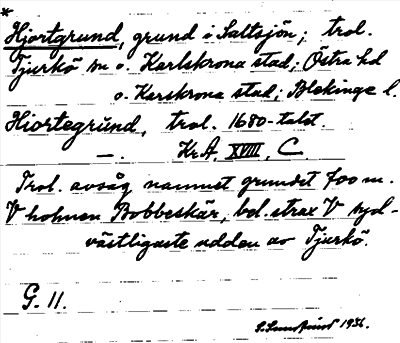 *
Hjortgrund, grund i Saltsjön; trol.
Tjurkö sn o. Karlskrona stad; Östra hd
o. Karskrona stad; Blekinge l.
Hiortegrund, trol. 1680-talet.
—. Kr.A. XVIII, C.
Trol. avsåg namnet grundet 700 m.
V holmen Bobbeskär, bel. strax V syd-
västligaste udden av Tjurkö.
G. 11.
1936.